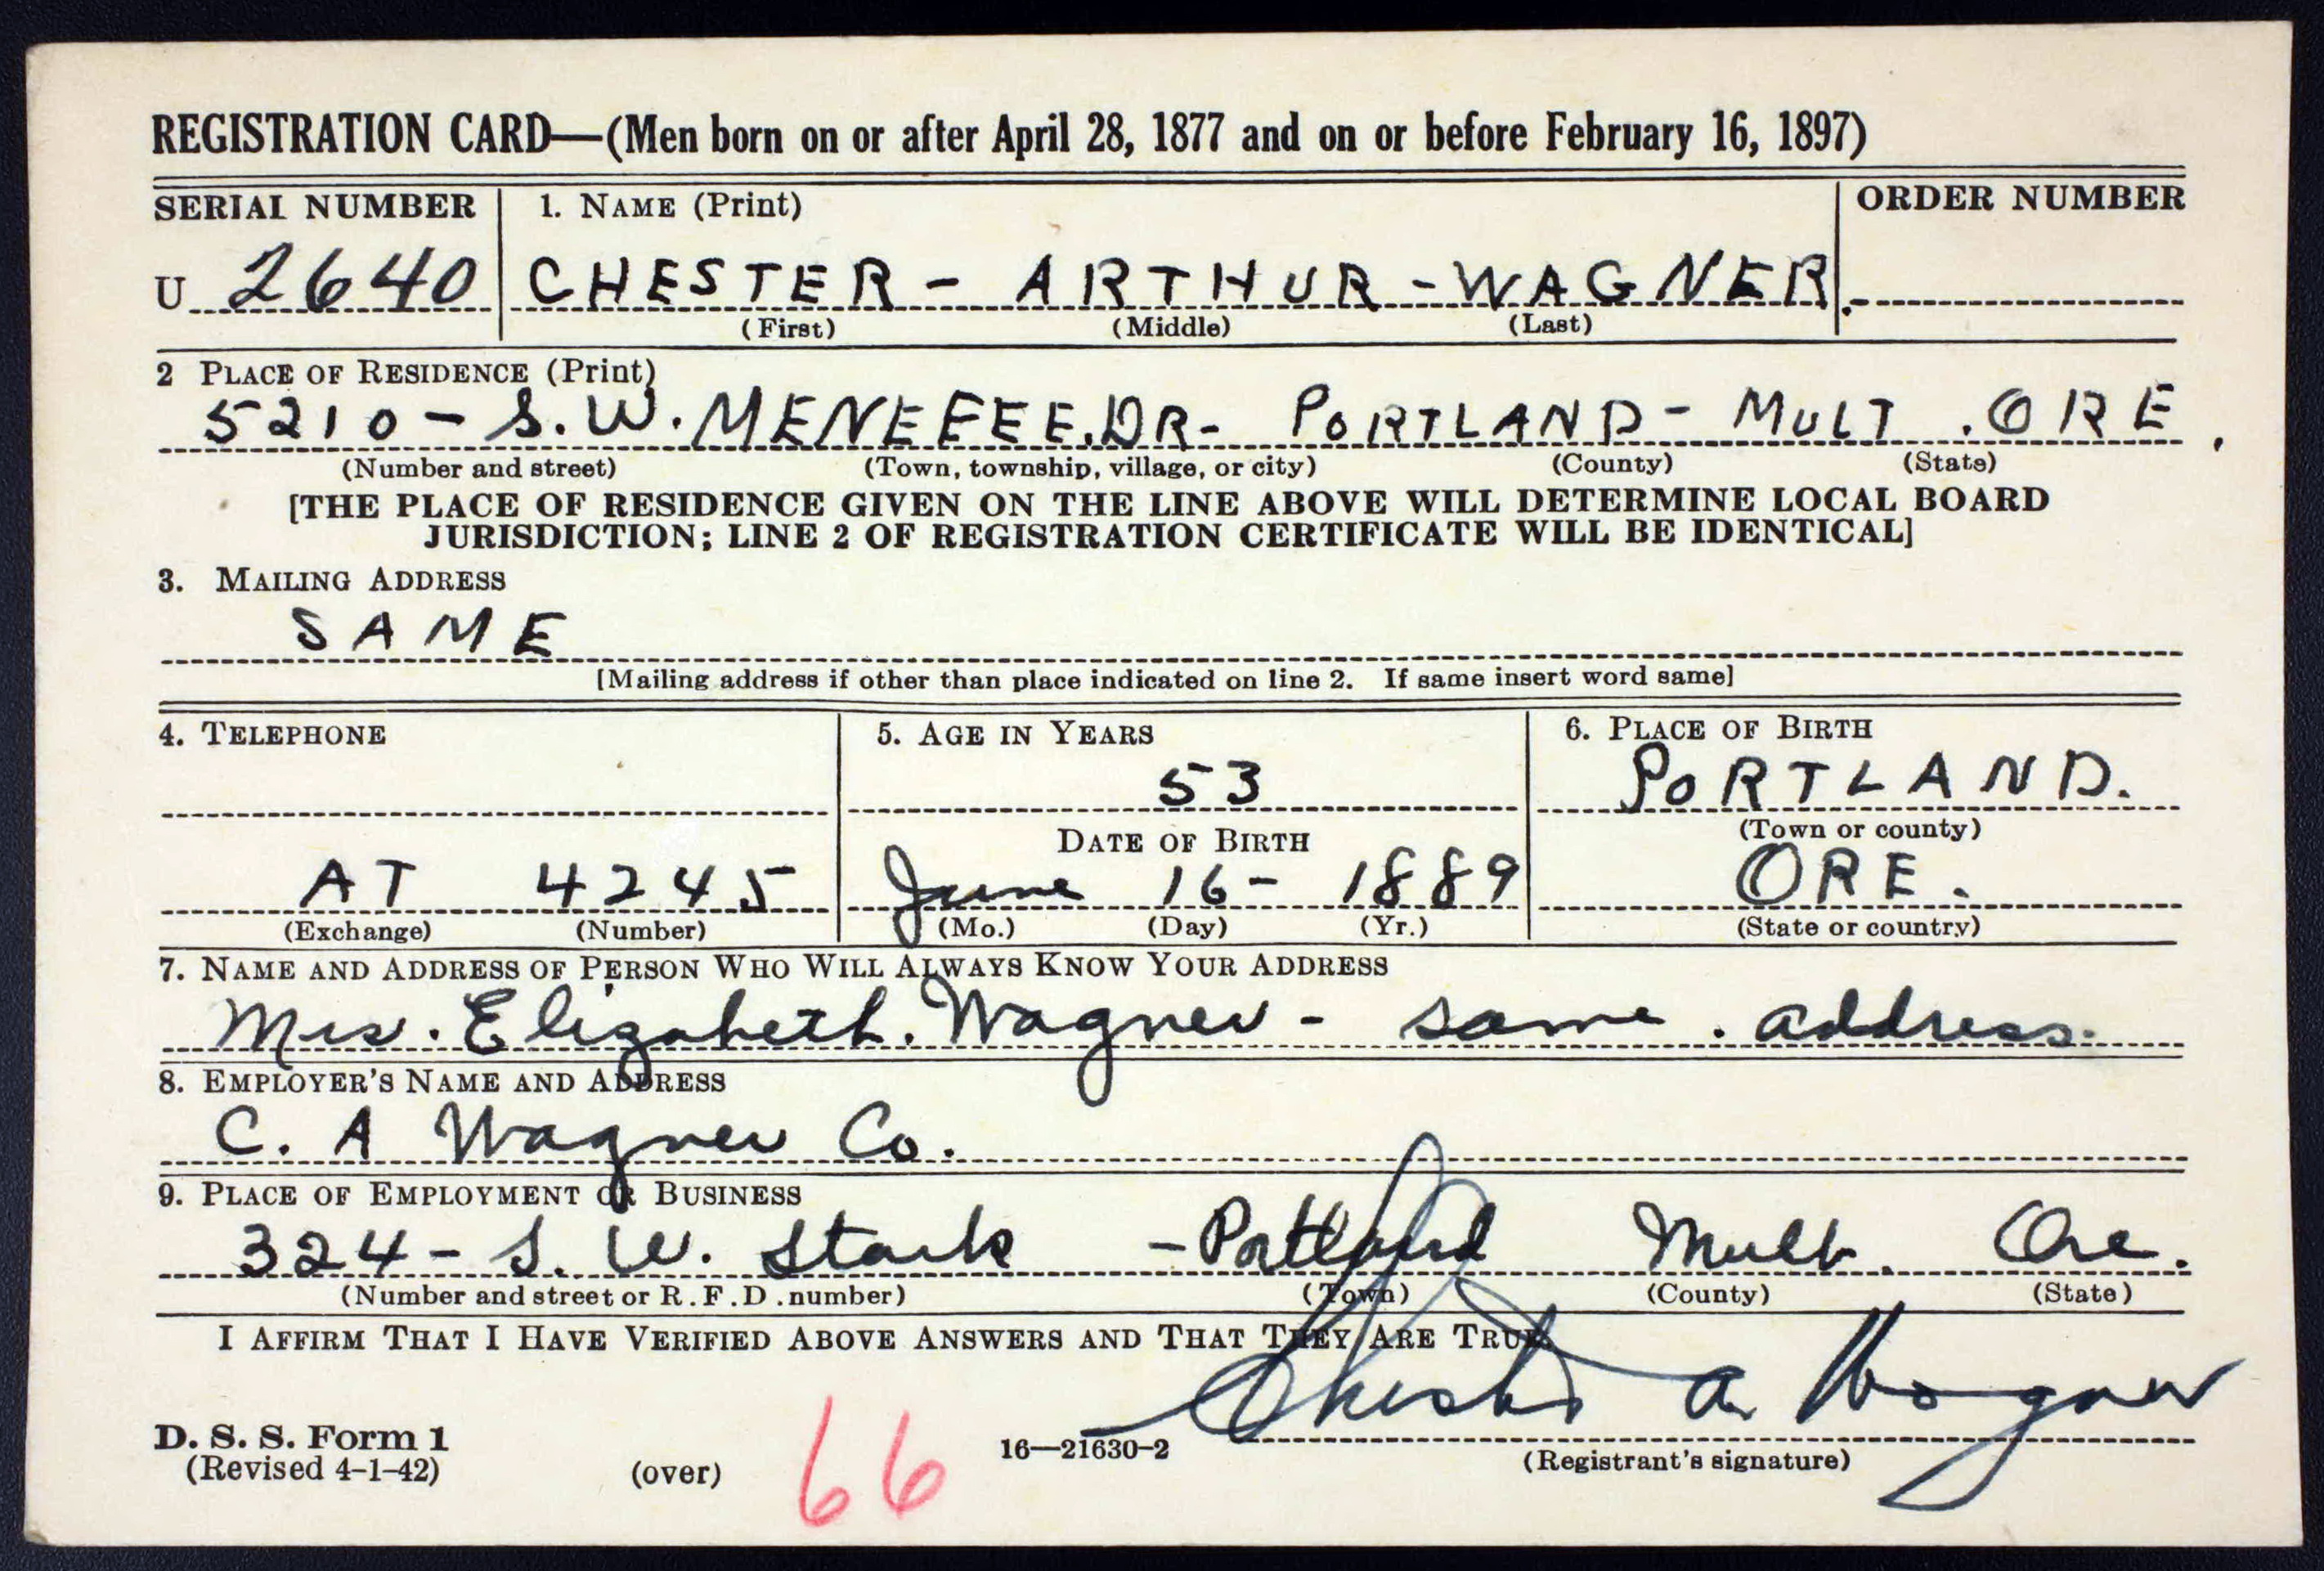 REGISTRATION CARD—(Men born on or after April 28, 1877 and on or before February 16, 1897)
SERIAL NUMBER 1. NAME (Print) ORDER NUMBER
U 2640 CHESTER - ARTHUR - WAGNER.
(First) (Middle) (Last)
2 PLACE OF RESIDENCE (Print)
5210 - S.W. MENEFEE. DR - PORTLAND - MULT. ORE.
(Number and street) (Town, township, village, or city) (County) (State)
[THE PLACE OF RESIDENCE GIVEN ON THE LINE ABOVE WILL DETERMINE LOCAL BOARD
JURISDICTION; LINE 2 OF REGISTRATION CERTIFICATE WILL BE IDENTICAL]
3. MAILING ADDRESS
SAME
[Mailing address if other than place indicated on line 2. If same insert word same]
4. TELEPHONE 5. AGE IN YEARS 6. PLACE OF BIRTH
53 PORTLAND.
DATE OF BIRTH (Town or county)
AT 4245 June 16 - 1889 ORE.
(Exchange) (Number) (Mo.) (Day) (Yr.) (State or country)
7. NAME AND ADDRESS OF PERSON WHO WILL ALWAYS KNOW YOUR ADDRESS
Mrs. Elizabeth. Wagner - same. address.
8. EMPLOYER'S NAME AND ADDRESS
C. A Wagner Co.
9. PLACE OF EMPLOYMENT OR BUSINESS
324 - S. W. Stark - Portland Mult. Ore.
(Number and street or R.F.D. number) (Town) (County) (State)
I AFFIRM THAT I HAVE VERIFIED ABOVE ANSWERS AND THAT THEY ARE TRUE.
Chester A Wagner
D. S. S. Form 1
(Revised 4-1-42) (over) 66 16—21630-2 (Registrant's signature)